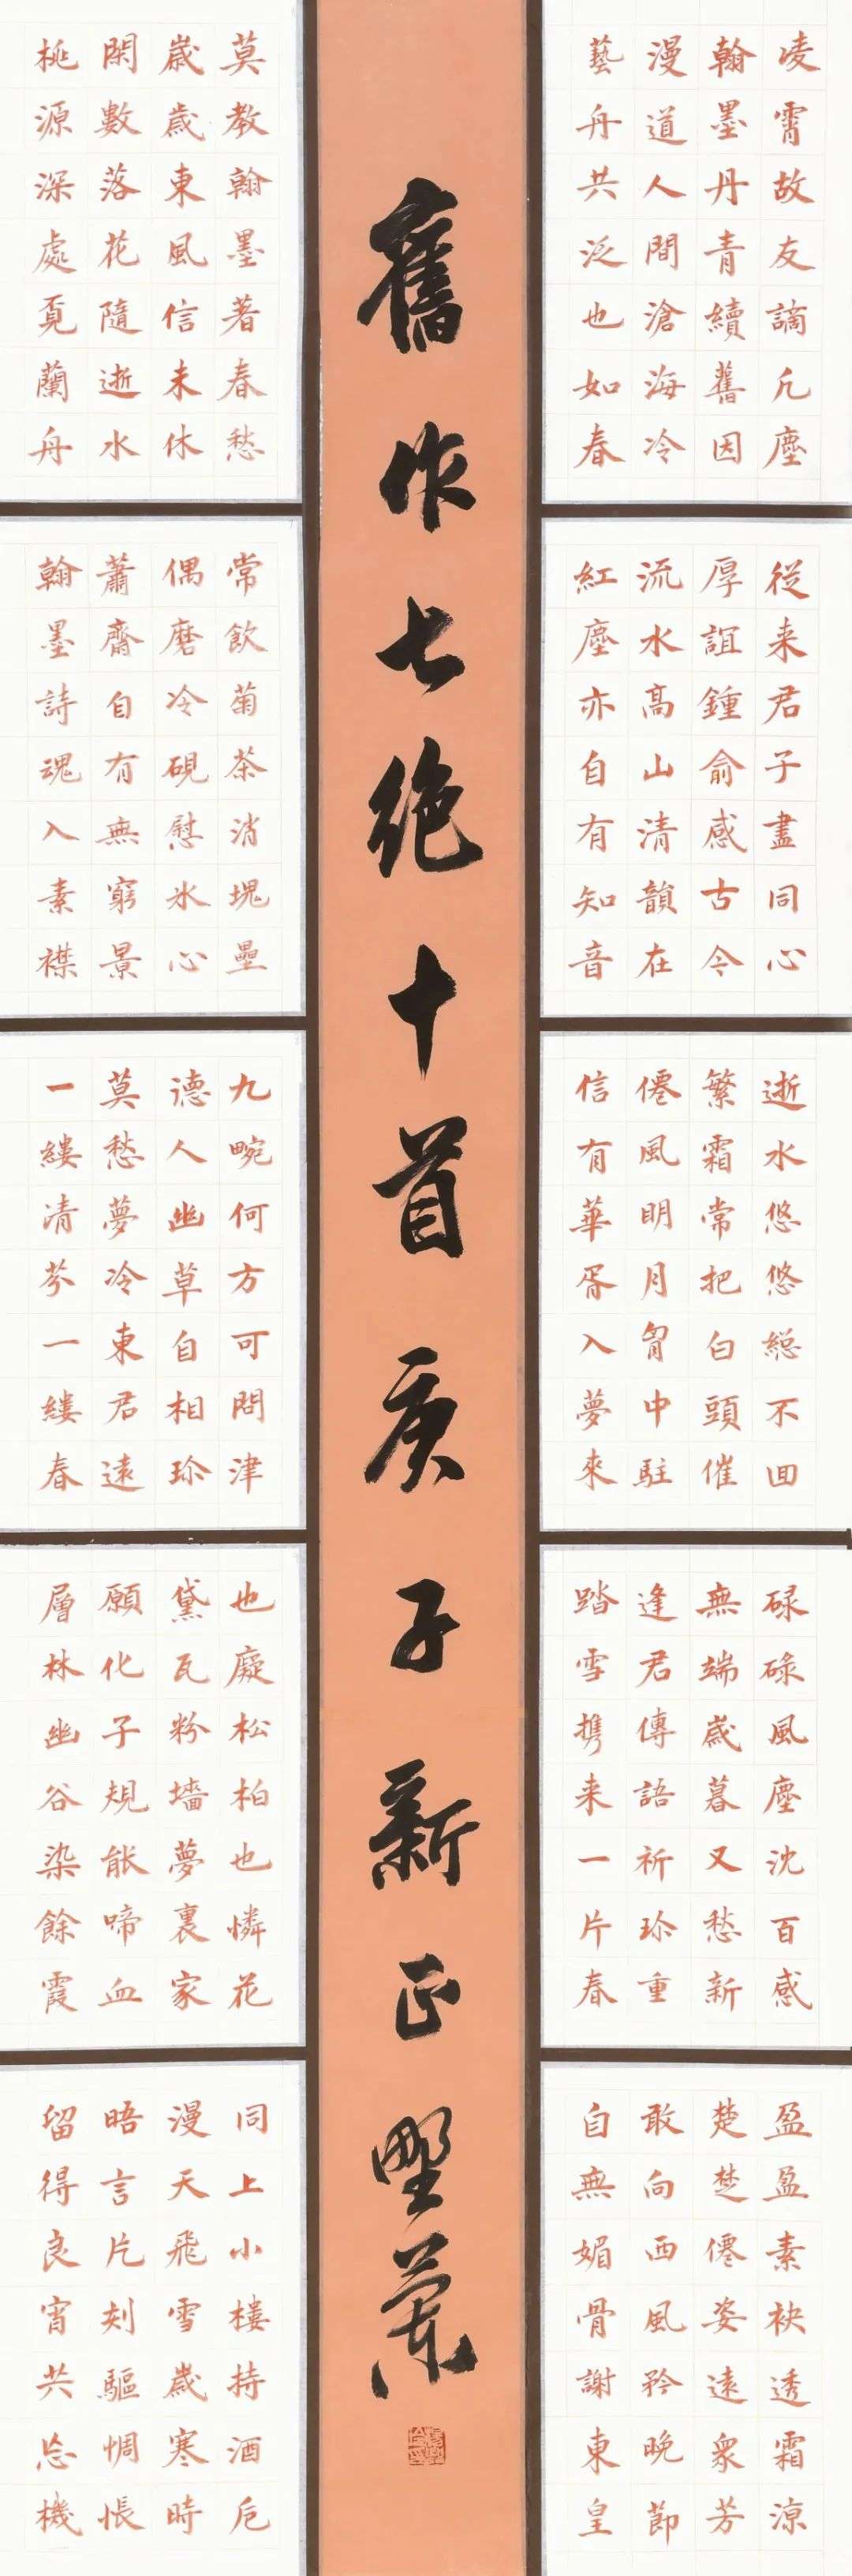 凌霄故友謫凡塵
翰墨丹青續舊因
漫道人間滄海冷
藝舟共泛也如春
從来君子盡同心
厚誼鍾俞感古今
流水高山清韻在
紅塵亦自有知音
逝水悠悠總不回
繁霜常把白頭催
僊風明月胷中駐
信有華胥入夢來
碌碌風塵沈百感
無端歲暮又愁新
逢君傳語祈珎重
踏雪携来一片春
盈盈素袂透霜涼
楚楚僊姿遠衆芳
敢向西風矜晚節
自無媚骨謝東皇
舊作七絶十首庚子新正野蘭
莫教翰墨著春愁
歲歲東風信未休
閑數落花隨逝水
桃源深處覓蘭舟
常飲菊茶消塊壘
偶磨冷硯慰氷心
蕭齋自有無窮景
翰墨詩魂入素襟
九畹何方可問津
德人幽草自相珎
莫愁夢冷東君遠
一縷清芬一縷春
也癡松柏也憐花
黛瓦粉墻夢裏家
願化子規能啼血
層林幽谷染餘霞
同上小樓持酒卮
漫天飛雪歲寒時
晤言片刻驅惆悵
留得良宵共忘機